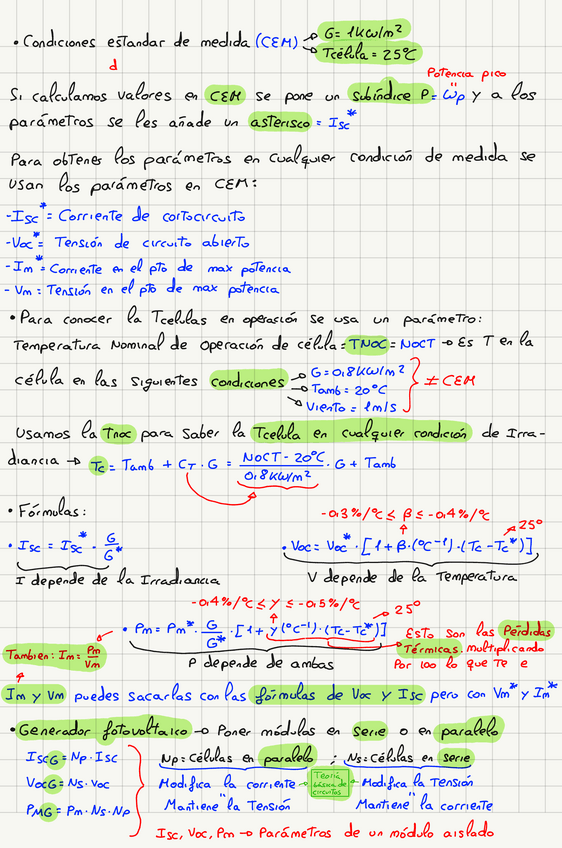 • Condiciones estandar de medida (CEM) → G = 1 kW/m²
→ Tcélula = 25ºC
d
Potencia pico
Si calculamos valores en CEM se pone un subíndice P = Wp y a los
parámetros se les añade un asterisco = Isc*
Para obtenes los parámetros en cualquier condición de medida se
usan los parámetros en CEM:
-Isc* = Corriente de cortocircuito
-Voc* = Tensión de circuito abierto
-Im* = Corriente en el pto de max potencia
- Vm = Tensión en el pto de max potencia
• Para conocer la Tcelulas en operación se usa un parámetro:
Temperatura Nominal de operación de célula = TNOC = NOCT → Es T en la
célula en las siguientes condiciones → G = 0,8 kW/m²
→ Tamb = 20ºC
→ Viento = 1m/s
} ≠ CEM
Usamos la Tnoc para saber la Tcelula en cualquier condición de Irra-
diancia → Tc = Tamb + CT · G = (NOCT - 20ºC / 0,8 kW/m²) · G + Tamb
• Fórmulas:
-0,3%/ºC ≤ β ≤ -0,4%/ºC
25º
• Isc = Isc* · G/G*
• Voc = Voc* · [1 + β·(ºC⁻¹)·(Tc - Tc*)]
I depende de la Irradiancia
V depende de la Temperatura
-0,4%/ºC ≤ γ ≤ -0,5%/ºC
25º
• Pm = Pm* · G/G* · [1 + γ(ºC⁻¹)·(Tc - Tc*)]
Esto son las Pérdidas
Térmicas. multiplicando
Por 100 lo que te e
También: Im = Pm/Vm
P depende de ambas
Im y Vm puedes sacarlas con las fórmulas de Voc y Isc pero con Vm* y Im*
• Generador fotovoltaico → Poner módulos en serie o en paralelo
IscG = Np · Isc
VocG = Ns · Voc
PMG = Pm · Ns · Np
Np = Células en paralelo ; Ns = Células en serie
Modifica la corriente
Mantiene la Tensión
Teoría básica de circuitos
Modifica la Tensión
Mantiene la corriente
Isc, Voc, Pm → Parámetros de un módulo aislado